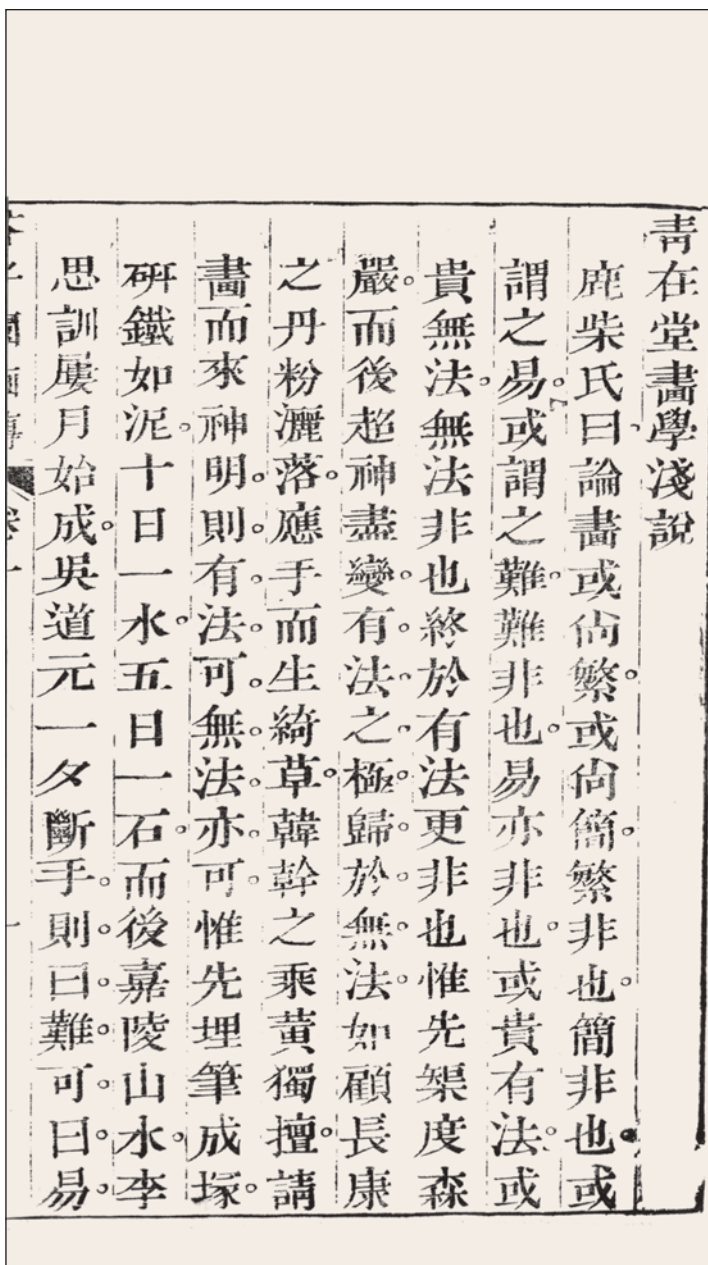 靑在堂畵學淺說
鹿柴氏曰論畵或尙繁或尙簡繁非也簡非也或
謂之易或謂之難難非也易亦非也或貴有法或
貴無法無法非也終於有法更非也惟先榘度森
嚴而後超神盡變有法之極歸於無法如顧長康
之丹粉灑落應手而生綺草韓幹之乘黃獨擅請
畵而來神明則有法可無法亦可惟先埋筆成塚
硏鐵如泥十日一水五日一石而後嘉陵山水李
思訓屢月始成吳道元一夕斷手則曰難可曰易